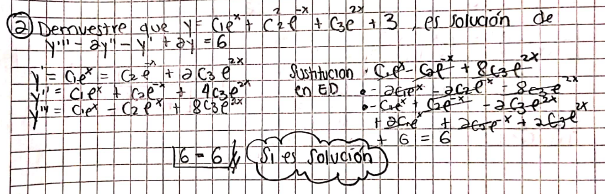 ② Demuestre que y = C₁eˣ + C₂e⁻ˣ + C₃e²ˣ + 3, es solución de
y''' - 2y'' - y' + 2y = 6
y' = C₁eˣ = C₂e⁻ˣ + 2C₃e²ˣ
y'' = C₁eˣ + C₂e⁻ˣ + 4C₃e²ˣ
y''' = C₁eˣ - C₂e⁻ˣ + 8C₃e²ˣ
Sustitucion : C₁eˣ - C₂e⁻ˣ + 8C₃e²ˣ
en ED - 2C₁eˣ - 2C₂e⁻ˣ - 8C₃e²ˣ
- C₁eˣ + C₂e⁻ˣ - 2C₃e²ˣ
+ 2C₁eˣ + 2C₂e⁻ˣ + 2C₃e²ˣ
+ 6 = 6
6 = 6 // Si es solución